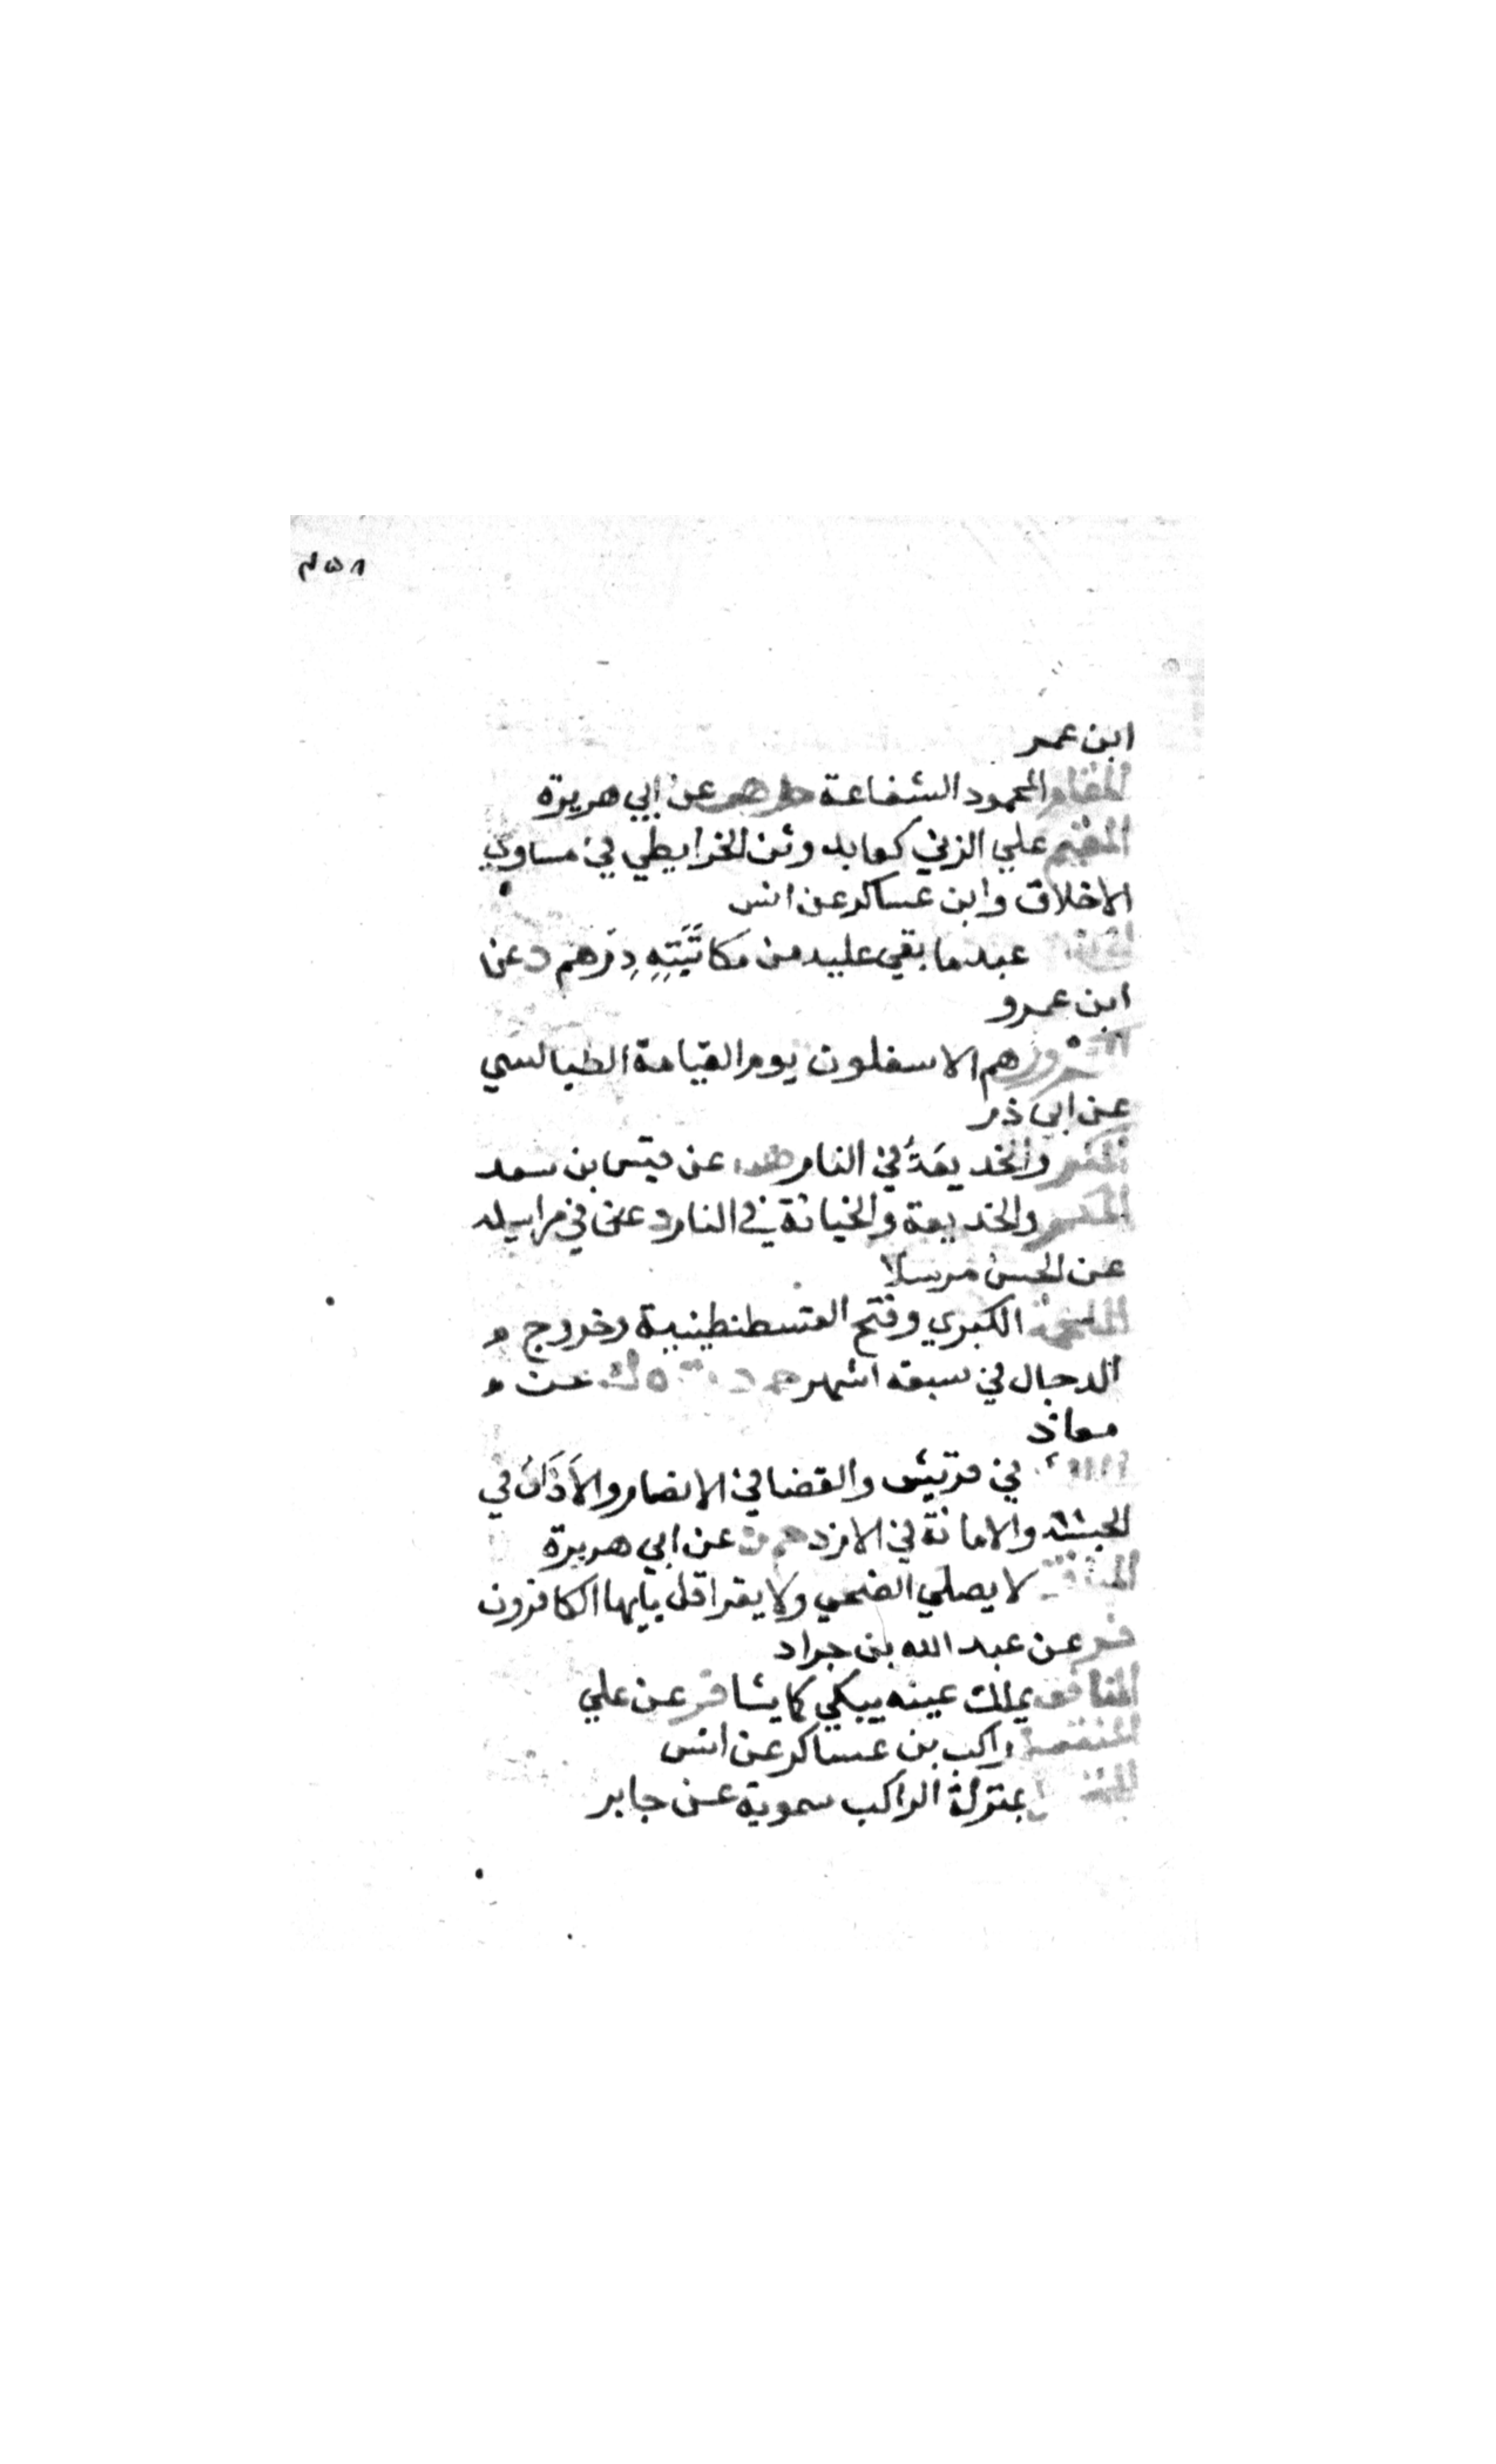 ٣٥٨
ابن عمر
المقام المحمود الشفاعة حل هب عن ابي هريرة
المقيم علي الزني كعابد وثن الخرايطي في مساوي
الاخلاق وابن عساكر عن انس
عبد ما بقي عليه من مكاتبته درهم د عن
ابن عمرو
هم الاسفلون يوم القيامة الطيالسي
عن ابي ذر
المكر والخديعة في النار هب عن قيس بن سعد
المكر والخديعة والخيانة في النار د عن في مراسيله
عن الحسن مرسلا
الملحمة الكبري وفتح القسطنطينية وخروج
الدجال في سبعة اشهر حم د ت ه ك عن
معاذ
في قريش والقضا في الانصار والأذان في
الحبشة والامانة في الازد حم ت عن ابي هريرة
المنافق لا يصلي الضحي ولا يقرا قل يايها الكافرون
فر عن عبد الله بن جراد
المنافق يملك عينه يبكي كما يشا فر عن علي
راكب بن عساكر عن انس
بمنزلة الراكب سموية عن جابر